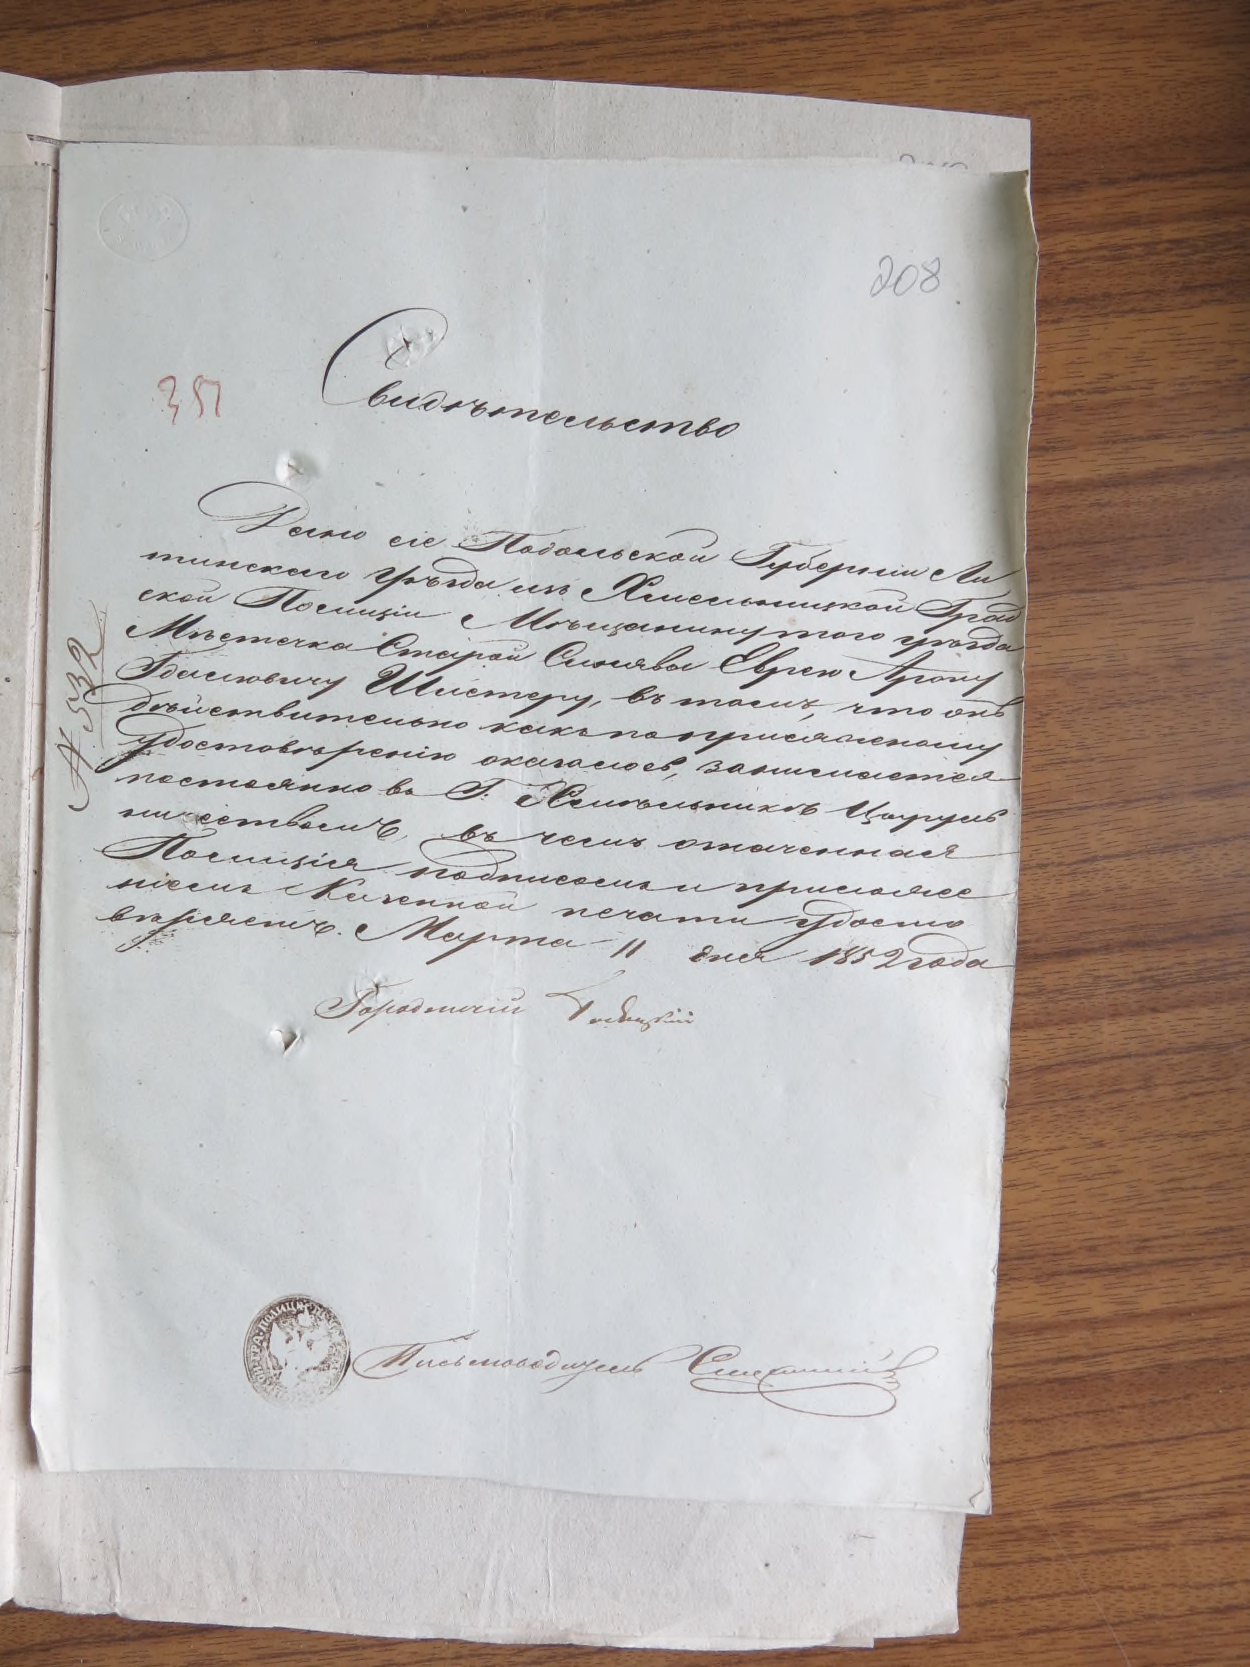 208
351
Свидѣтельство
Дано сіе Подольской Губерніи Ли
тинскаго уѣзда изъ Хмельницкой Град
ской Полиціи Мѣщанину того уѣзда
Мѣстечка Старой Синявы Еврею Арону
Шистеру, въ томъ, что онъ
дѣйствительно какъ по присяжному
удостовѣренію оказалось, занимается
постоянно въ Г. Хмѣльникѣ Цырул
ничествомъ, въ чемъ означенная
Полиція подписомъ и приложе
ніемъ Казенной печати удосто
вѣряетъ. Марта 11 дня 1852 года
№ 532
Городничій
Письмоводитель